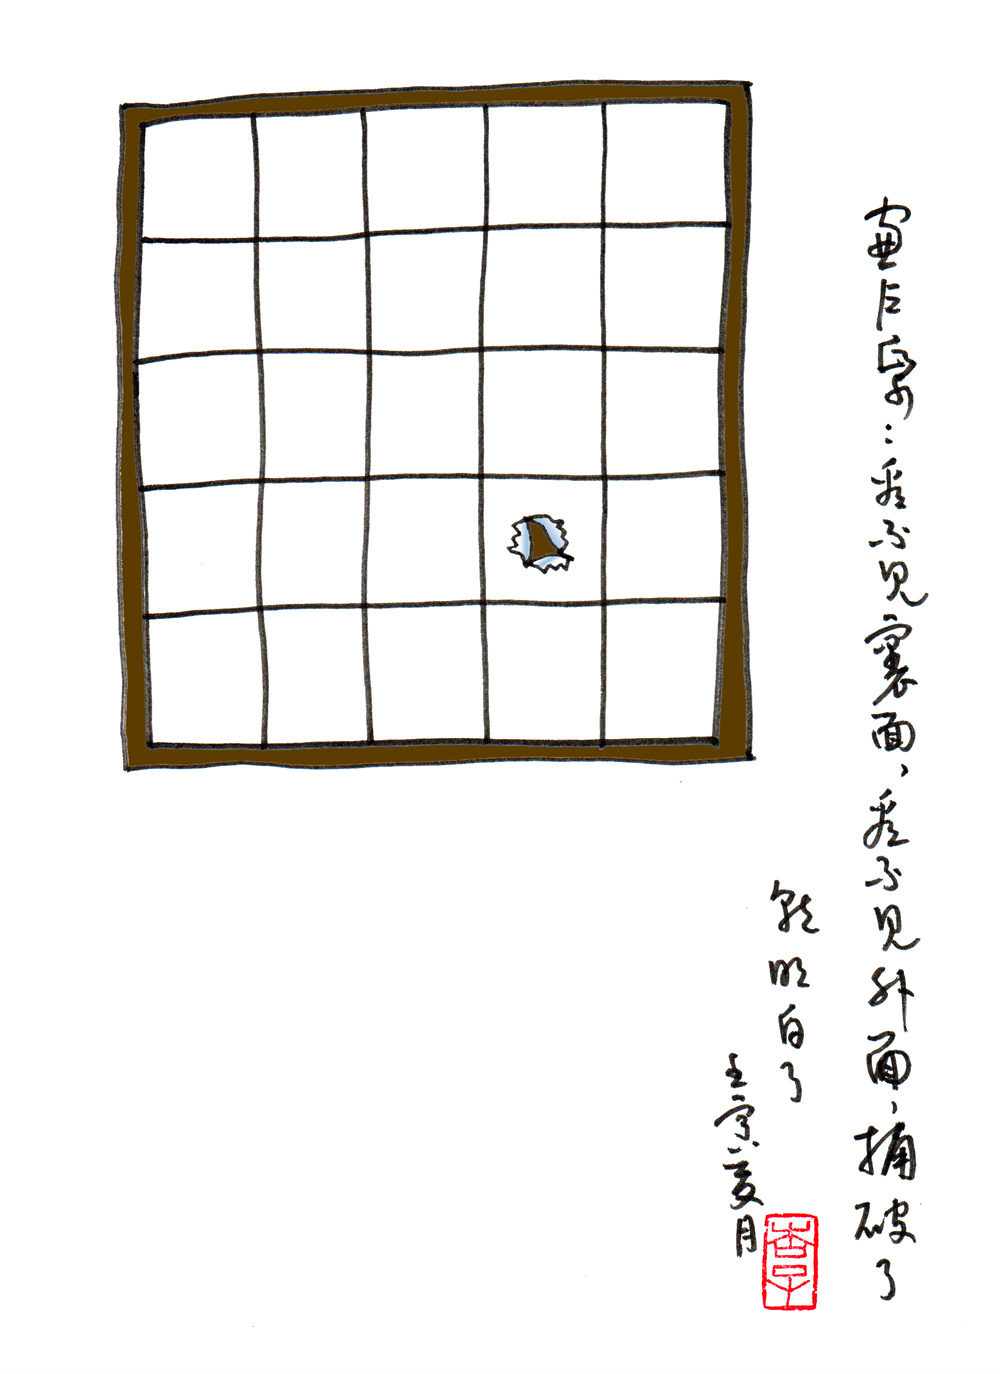 窗户帋：看不見裏面，看不見外面，捅破了
就明白了
壬寅夏月